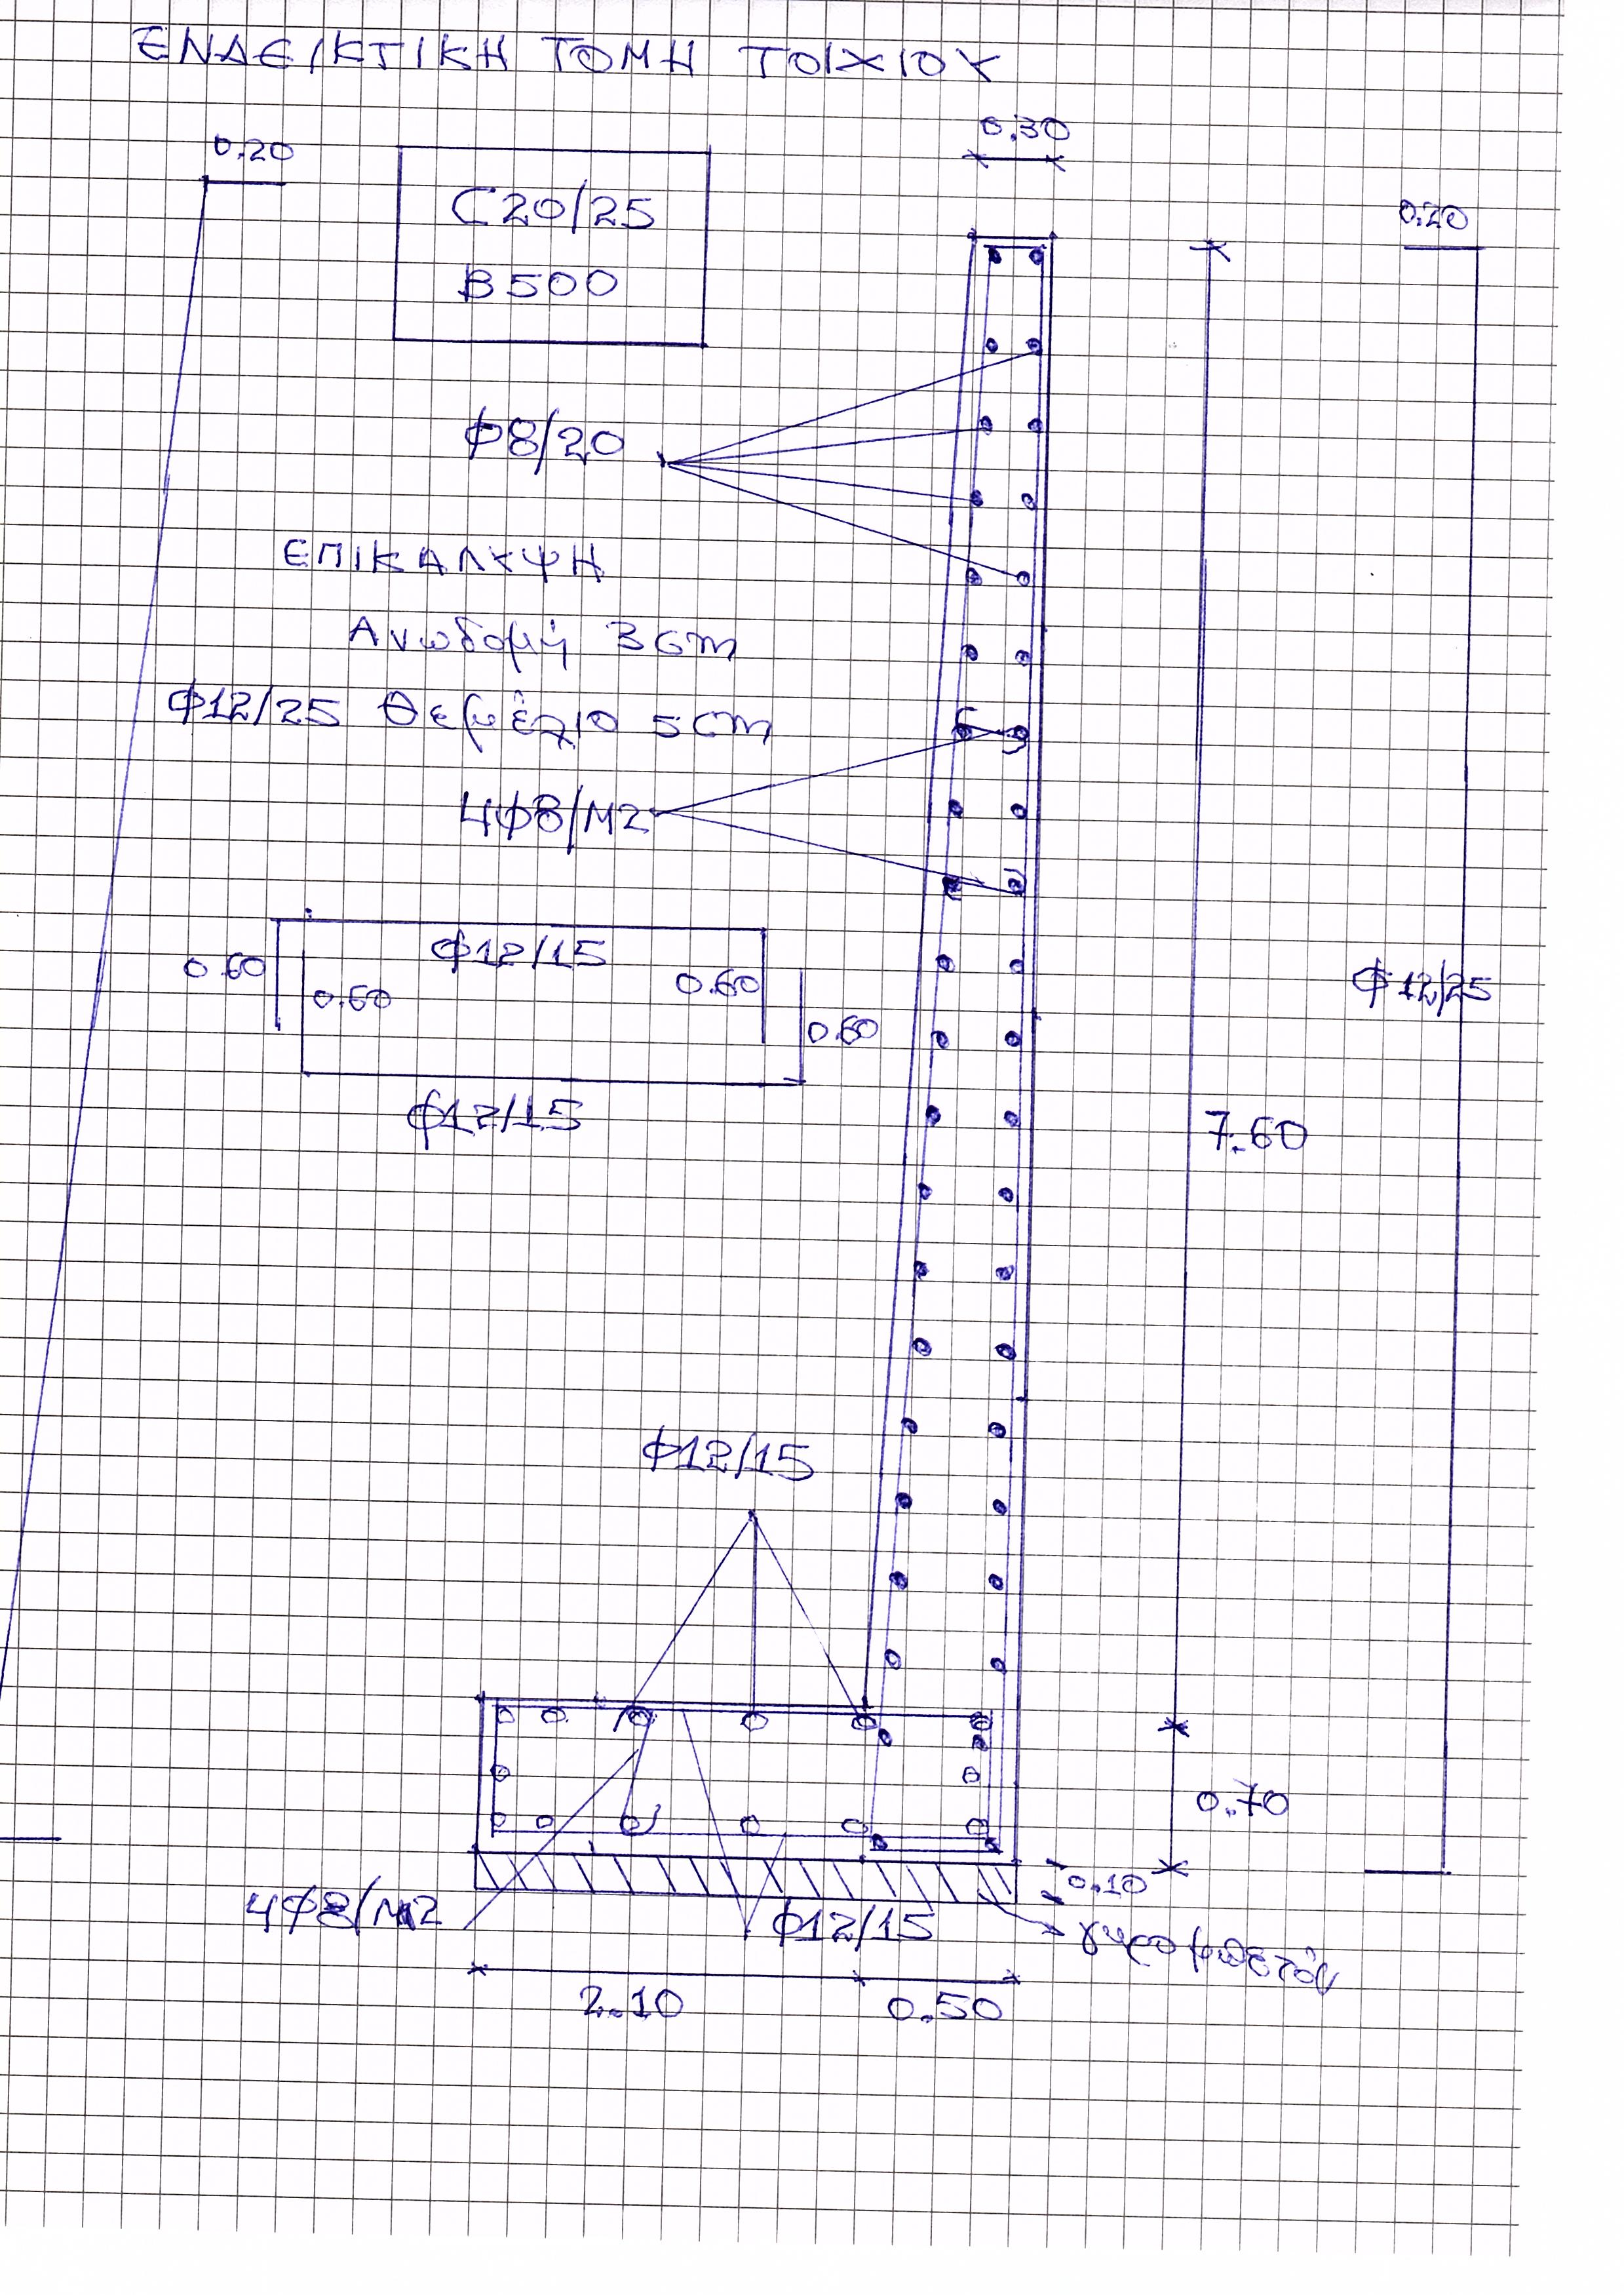 ΕΝΔΕΙΚΤΙΚΗ ΤΟΜΗ ΤΟΙΧΙΟΥ
0.30
0.20
C20/25
B500
0.20
Φ8/20
ΕΠΙΚΑΛΥΨΗ
Ανωδομή 3cm
Φ12/25 Θεμέλιο 5cm
4Φ8/M2
Φ12/15
0.60
0.60
0.60
0.60
Φ12/15
Φ12/25
7.60
Φ12/15
0.70
0.10
4Φ8/M2
Φ12/15
2.10
0.50